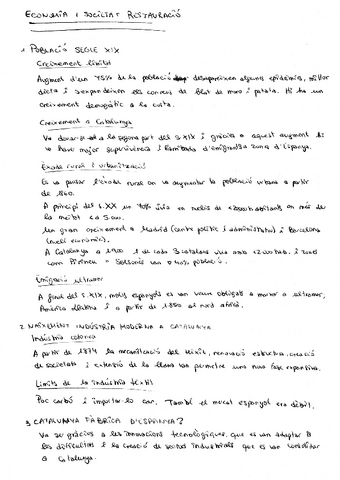 ECONOMIA I SOCIETAT RESTAURACIÓ
1 POBLACIÓ SEGLE XIX
Creixement limitat
Augment d'un 75% de la població desapareixen algunes epidèmies, millor
dieta i s'expandeixen els conreus de blat de moro i patata. Hi ha un
creixement demogràfic a la costa.
Creixement a Catalunya
Va donar-se a la segona part del s.XIX i gràcies a aquest augment hi
va haver major supervivència i l'arribada d'emigrants zona d'Espanya.
Èxode rural i urbanització
Es va produir l'èxode rural on va augmentar la població urbana a partir
de 1860.
A principi del s.XX un 70% vivia en nuclis de <20000 habitants on més de
la meitat <a 5.000.
Un gran creixement a Madrid (centre polític i administratiu) i Barcelona
(nucli econòmic).
A Catalunya a 1900 1 de cada 3 catalans viu amb <2000 hab. i zones
com Pirineu - Solsonès van 0'40% població.
Emigració ultramar
A final del s.XIX, molts espanyols es van veure obligats a marxar a ultramar,
Amèrica llatina i a partir de 1850 al nord d'Àfrica.
2. NAIXEMENT INDÚSTRIA MODERNA A CATALUNYA
Indústria cotonera
A partir de 1874 la mecanització del tèxtil, renovació estructura, creació
de societats i extensió de la va permetre una nova fase expansiva.
Límits de la indústria tèxtil
Poc carbó i importar-lo car. També el mercat espanyol era dèbil.
3 CATALUNYA FÀBRICA D'ESPANYA?
Va ser gràcies a les innovacions tecnològiques, que es van adaptar a
les dificultats i la creació de sectors industrials que es van consolidar
a Catalunya.